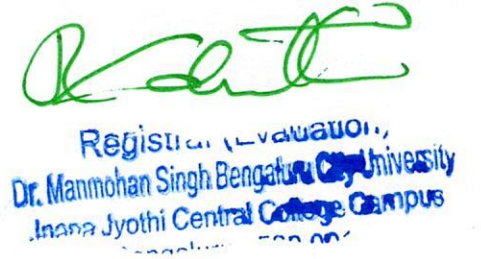 Registrar (Evaluation)
Dr. Manmohan Singh Bengaluru City University
Jnana Jyothi Central College Campus